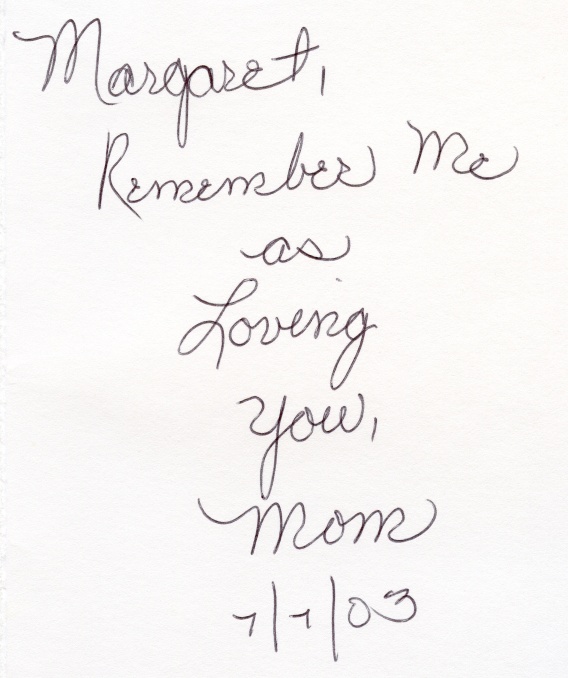 Margaret,
Remember Me
as
Loving
You,
Mom
7/7/03